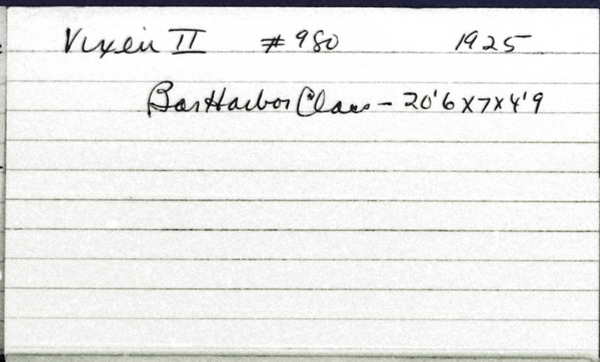 Vixen II #980 1925
Bar Harbor Class - 20'6 x 7 x 4'9